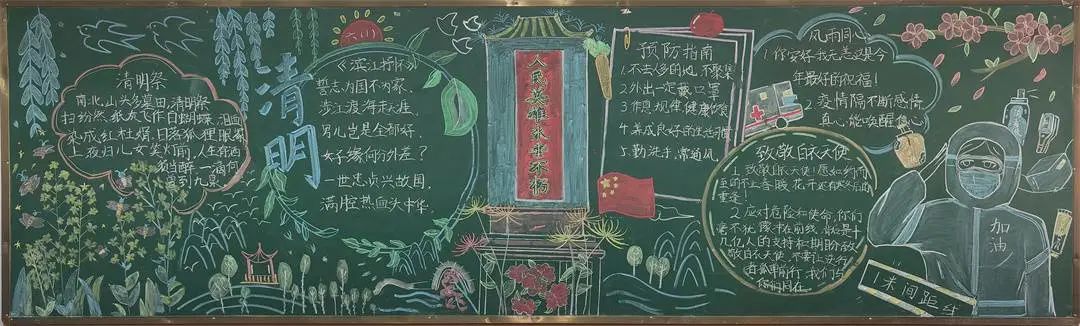 清明祭
南北山头多墓田,清明祭
扫纷然,纸灰飞作白蝴蝶,泪血
染成红杜鹃,日落狐狸眠冢
上夜归儿女笑灯前,人生有酒
须当醉,一滴何
曾到九泉
清明
六川
《滨江抒怀》
誓志为国不为家,
涉江渡海走天涯,
男儿岂是全都好,
女子缘何分外差?
一世忠贞兴故国,
满腔热血头中华,
人民英雄永垂不朽
预防指南
1.不去人多的地,不聚集
2.外出一定戴口罩
3.作息规律,健康饮食
4.养成良好的生活习惯
5.勤洗手,常通风
风雨同心
1.你安好,我无恙这是今
年最好的祝福!
2.疫情隔不断感情,
真心能唤醒信心
致敬白衣天使
1.致敬白衣天使!愿如约而
至的不止春暖花开还有
重逢!
2.应对危险和使命,你们
毫不犹豫冲在前线,你们是十
几亿人的支持和期盼致
敬白衣天使
们同在
加油
1米间距线